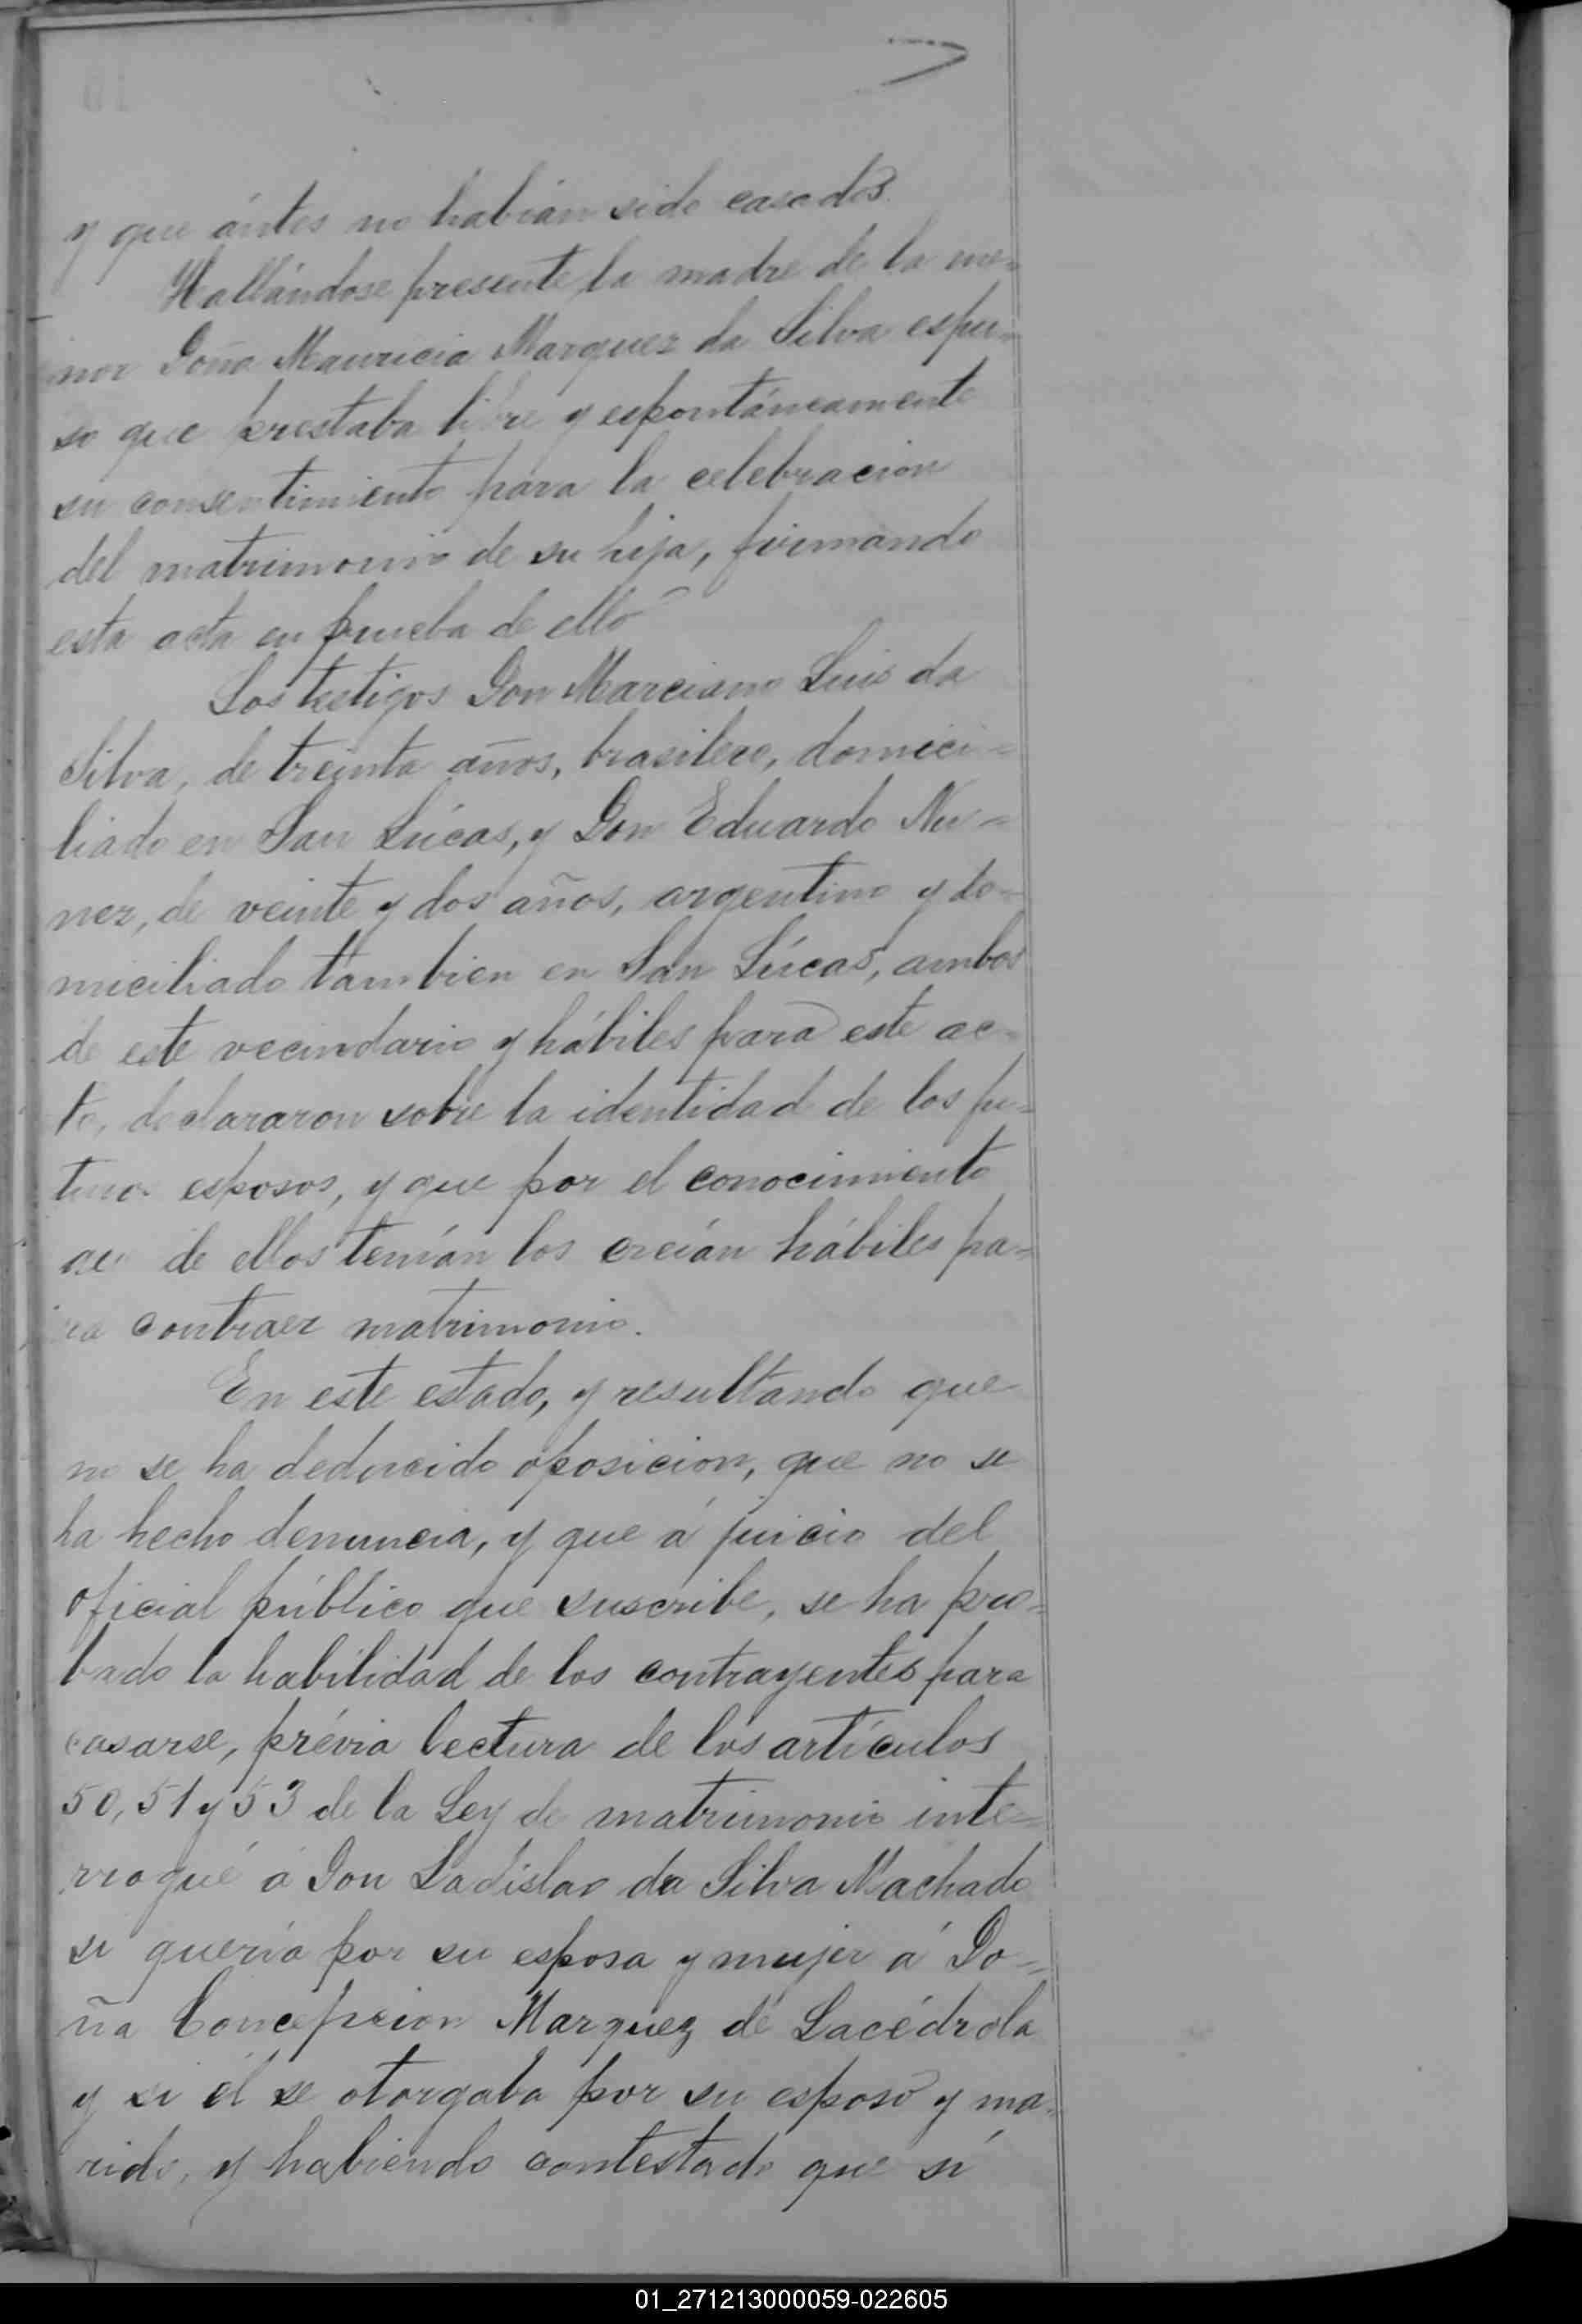 y que ántes no habían sido casados.
Hallándose presente la madre de la me=
nor Doña Mauricia Marquez da Silva espu=
so que prestaba libre y espontáneamente
su consentimiento para la celebracion
del matrimonio de su hija, firmando
esta acta en prueba de ello
Los testigos Don Marciano Luis da
Silva, de treinta años, brasilero, domici=
liado en San Lúcas, y Don Eduardo Nu=
nez, de veinte y dos años, argentino y do=
miciliado tambien en San Lúcas, ambos
de este vecindario y hábiles para este ac=
to, declararon sobre la identidad de los fu=
turos esposos, y que por el conocimiento
que de ellos tenían los creían hábiles pa=
ra contraer matrimonio.
En este estado, y resultando que
no se ha deducido oposicion, que no se
ha hecho denuncia, y que á juicio del
oficial público que suscribe, se ha pro=
bado la habilidad de los contrayentes para
casarse, prévia lectura de los artículos
50, 51 y 53 de la Ley de matrimonio inte=
rrogué á Don Ladislao da Silva Machado
si quería por su esposa y mujer á Do=
ña Concepcion Marquez de Lacédrola
y si él se otorgaba por su esposo y ma=
rido, y habiendo contestado que sí
01_271213000059-022605